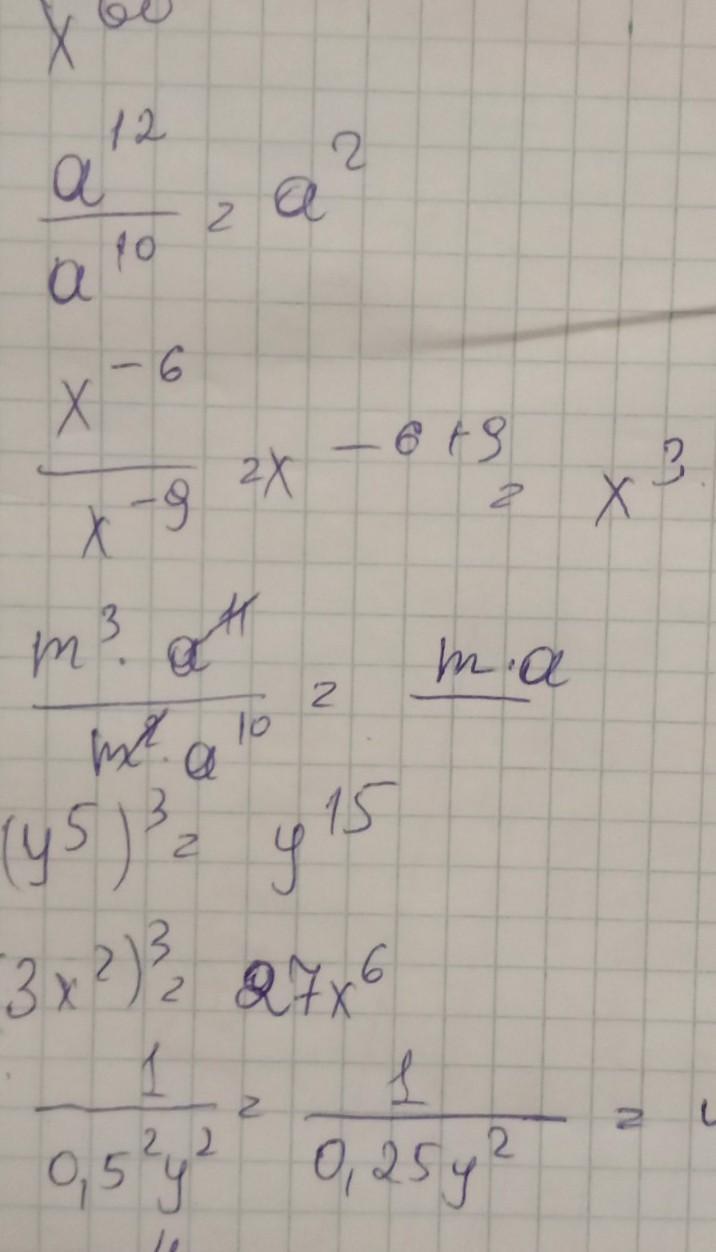 x^60
a^12/a^10 = a^2
x^-6/x^-9 = x^-6+9 = x^3
m^3·a^11/m^2·a^10 = m·a
(y^5)^3 = y^15
3x^2)^3 = 27x^6
1/0,5^2y^2 = 1/0,25y^2 =